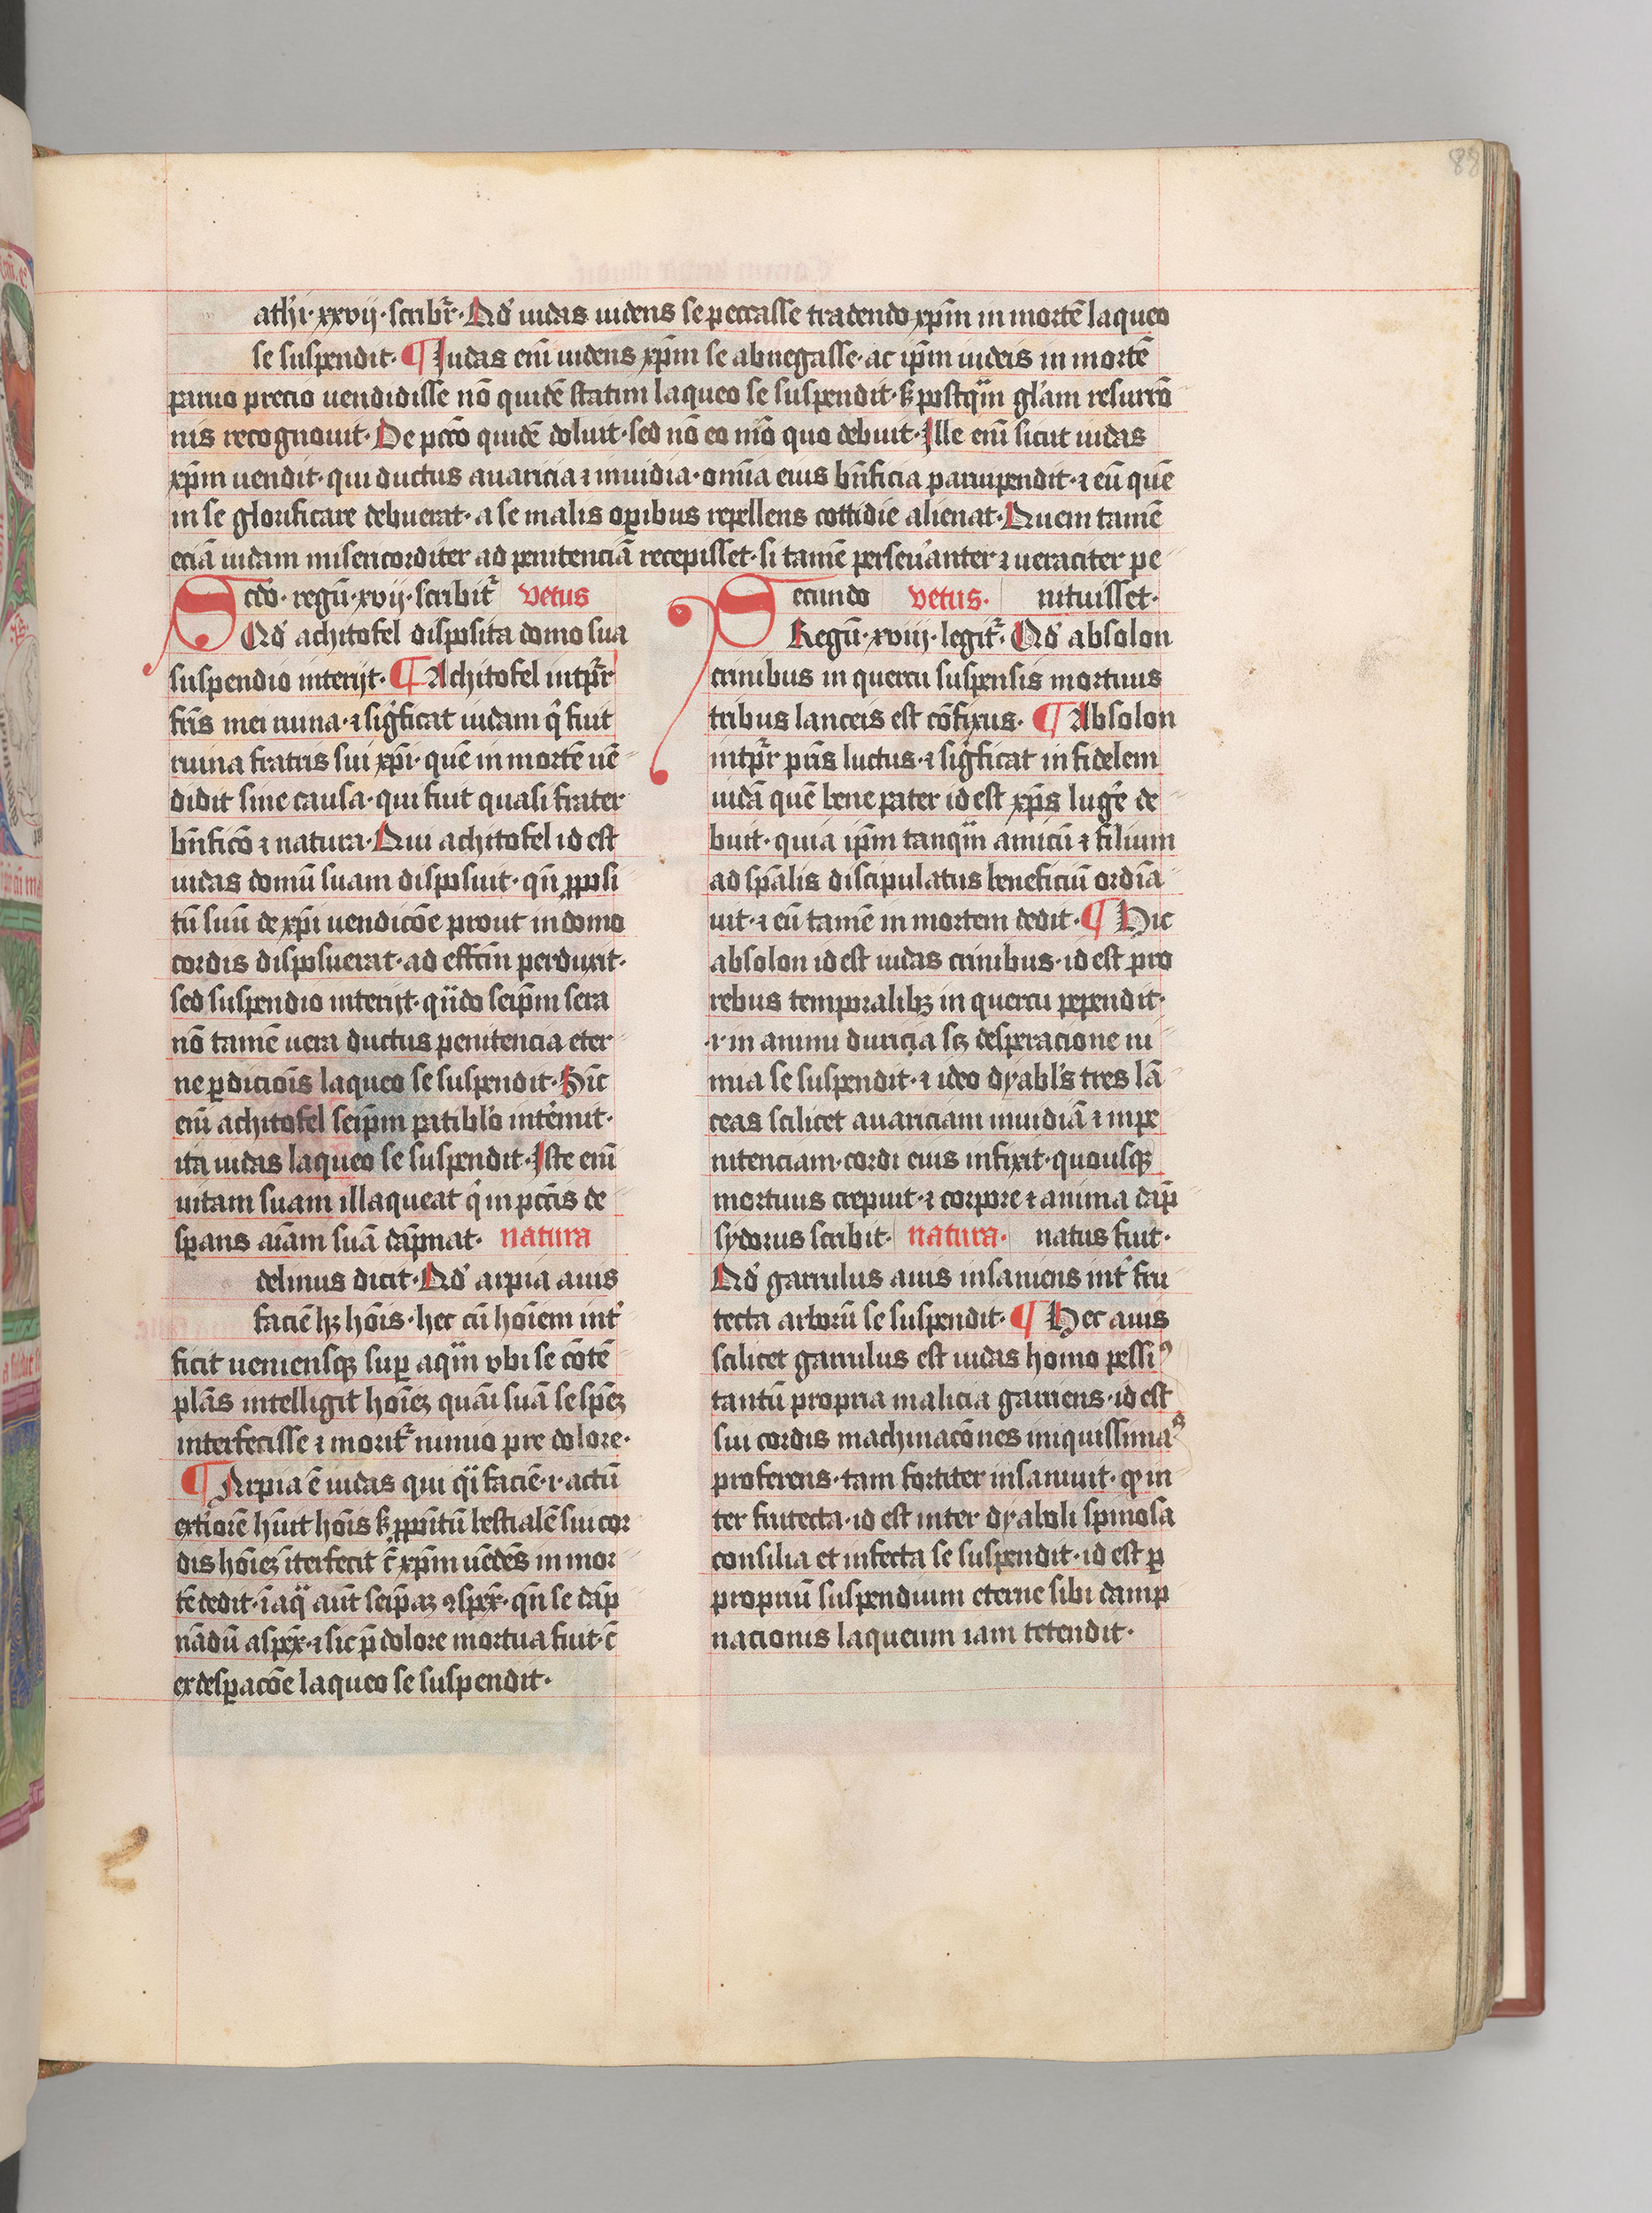 athi· xxvij· scribr̃· Qd' iudas uidens se peccasse tradendo xp̄m in mortē laqueo
se suspendit· ¶ Judas enī uidens xp̄m se abnegasse· ac ip̄m iudeis in mortē
paruo precio uendidisse nō quidē statim laqueo se suspendit· sꝫ postq̈m gl'am resurrō
nis recognouit· De pccō quidē doluit· sed nō eo mō quo debuit· Ille enī sicut iudas
xp̄m uendit· qui ductus auaricia ⁊ inuidia· omīa eius bn̄ficia paruipendit· ⁊ eū quē
in se glorificare debuerat· a se malis oꝑibus repellens cottidie alienat· Quem tamē
eciā iudam misericorditer ad penitenciā recepisset· si tamē perseu'anter ⁊ ueraciter pe
nituisset·
Scdo· regū· xvij· scribit̃ vetus
Qd' achitofel disposita domo sua
suspendio interijt· ¶ Achitofel intp̄r̃
fr̄is mei ruina· ⁊ sigͥficat iudam qͥ fuit
ruina fratris sui xp̄i· quē in mortē uē
didit sine causa· qui fuit quasi frater
bn̄ficō ⁊ natura· Qui achitofel id est
iudas domū suam disposuit· qn̄ ꝓposi
tū suū de xp̄i uendicōe prout in domo
cordis disposuerat· ad effcm̄ perduxit·
sed suspendio interijt· qn̈do seip̄m sera
nō tamē uera ductus penitencia eter
ne ꝑdicioīs laqueo se suspendit· Sic
enī achitofel seip̄m patibl'o int'emit·
ita iudas laqueo se suspendit· Iste enī
uitam suam illaqueat qͥ in pccīs de
sꝑans aīam suā dāpnat· natura
delinus dicit· Qd' arpia auis
faciē hꝫ hoīs· hec cū hoīem int'
ficit ueniensqꝫ suꝑ aq̈m vbi se cōtē
plās intelligit hoīeꝫ quāi suā se spēꝫ
interfecisse ⁊ morit̃ nimio pre dolore·
¶ Arpia ē iudas qui q̈i faciē· i· actū
ext'iorē hūit hoīs sꝫ ꝓpoītū bestialē sui cor
dis hoīeꝫ īterfecit c̄ xp̄m uēdēs in mor
tē dedit· ī aq̈ aūt seip̄aꝫ ꝯspex̄· qn̄ se dāp
nādū aspex̄· ⁊ sic p̄ dolore mortua fuit· c̄
ex desꝑacōe laqueo se suspendit·
Secundo vetus·
Regū· xviij· legit̃· Qd' absolon
crinibus in quercu suspensis mortuus
tribus lanceis est cōfixus· ¶ Absolon
intp̄r̃ pr̄is luctus· ⁊ sigͥficat infidelem
iudā quē bene pater id est xp̄s lug'e de
buit· quia ip̄m tanq̈m amicū ⁊ filium
ad sp̄alis discipulatus beneficiū ordīa
uit· ⁊ eū tamē in mortem dedit· ¶ Hic
absolon id est iudas crinibus· id est pro
rebus temporalibꝫ in quercu pependit·
·i· in animi duricia scꝫ desperacione ni
mia se suspendit· ⁊ ideo dyabl's tres lā
ceas scilicet auariciam inuidiā ⁊ inpe
nitenciam· cordi eius infixit· quousqꝫ
mortuus crepuit· ⁊ corpore ⁊ anima dāp
natus fuit·
sydorus scribit· natura·
Qd' garrulus auis insaniens int' fru
tecta arborū se suspendit· ¶ Hec auis
scilicet garrulus est iudas homo pessiꝰ
tantū propria malicia garriens· id est
sui cordis machinacōnes iniquissimaˢ
proferens· tam fortiter insaniuit· qꝫ in
ter frutecta· id est inter dyaboli spinosa
consilia et infecta se suspendit· id est ꝑ
propriū suspendium eterne sibi damp
nacionis laqueum iam tetendit·